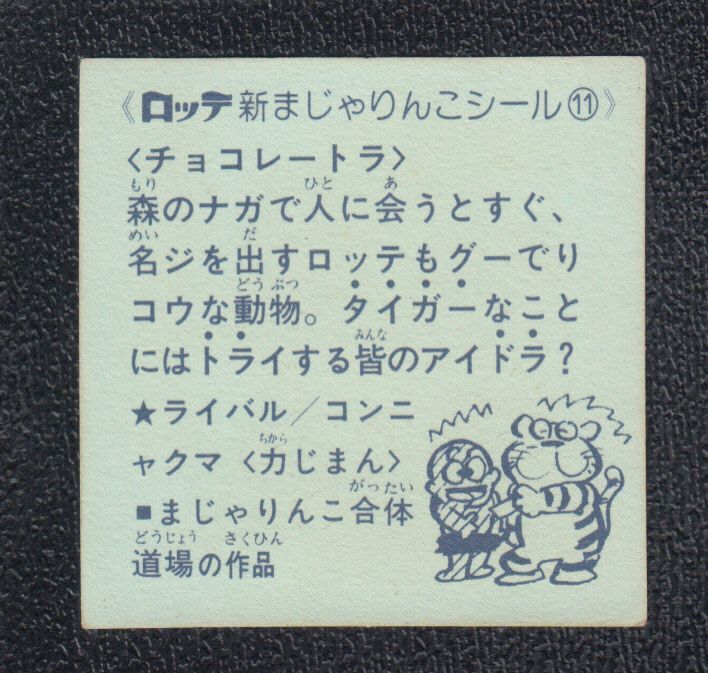 《ロッテ新まじゃりんこシール⑪》
〈チョコレートラ〉
森のナガで人に会うとすぐ、
名ジを出すロッテもグーでり
コウな動物。タイガーなこと
にはトライする皆のアイドラ？
★ライバル／コンニ
ャクマ〈力じまん〉
■まじゃりんこ合体
道場の作品